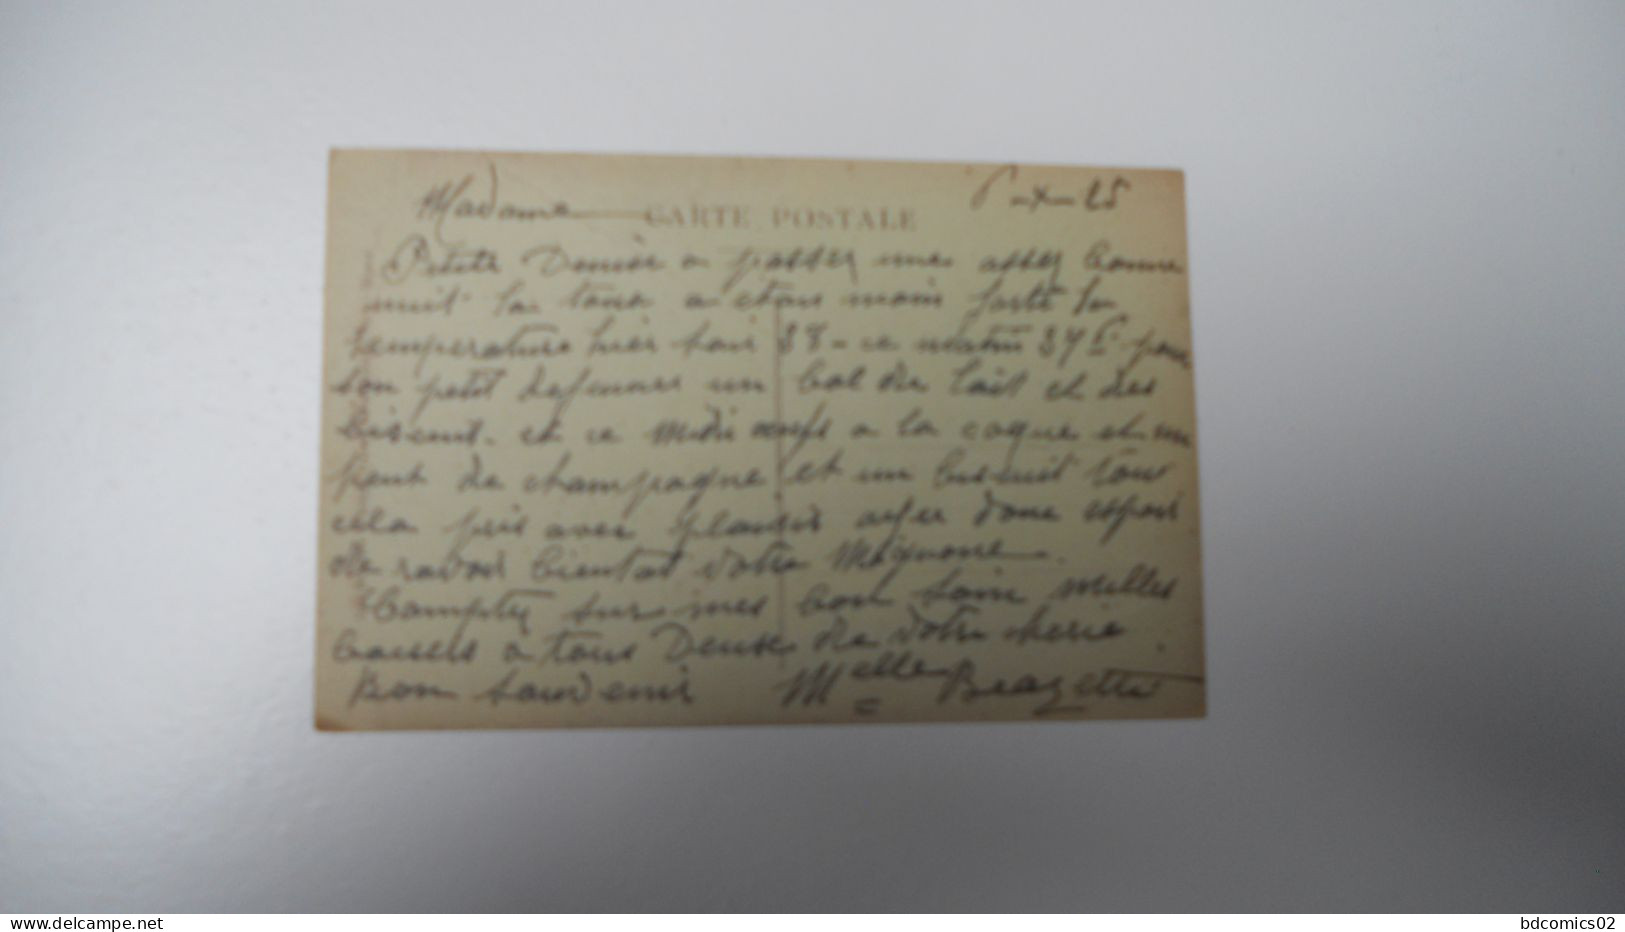 Madame CARTE POSTALE 6-X-25
Petite Denise a passer une assez bonne
nuit la toux a etais moin forte la
temperature hier soir 38 - ce matin 37 6 pour
son petit dejeuner un bol de lait et des
biscuit. et ce midi oeufs a la coque et un
peut de champagne et un biscuit tous
cela pris avec plaisir ayer donc espoir
de ravoir bientot votre Mignone.
Comptez sur mes bon soin milles
baisers a tous Denise de votre cherie.
Bon souvenir Melle
delcampe.net bdcomics02